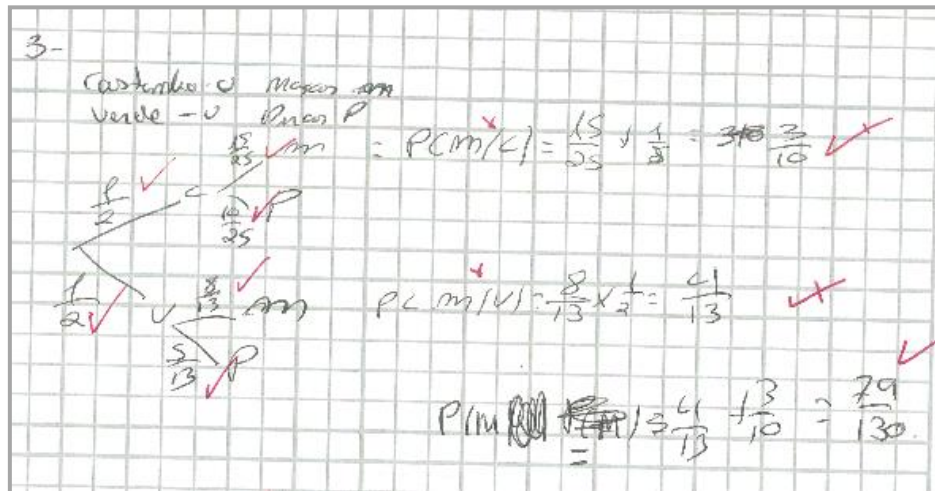 3-
castanho c Maças m
verde - v Peras P
15/25 m = P(m/c) = 15/25 x 1/2 = 3/10
1/2 c
10/25 P
1/2 v 8/13 m P(m/v) = 8/13 x 1/2 = 4/13
5/13 P
P(m) = 4/13 + 3/10 = 79/130